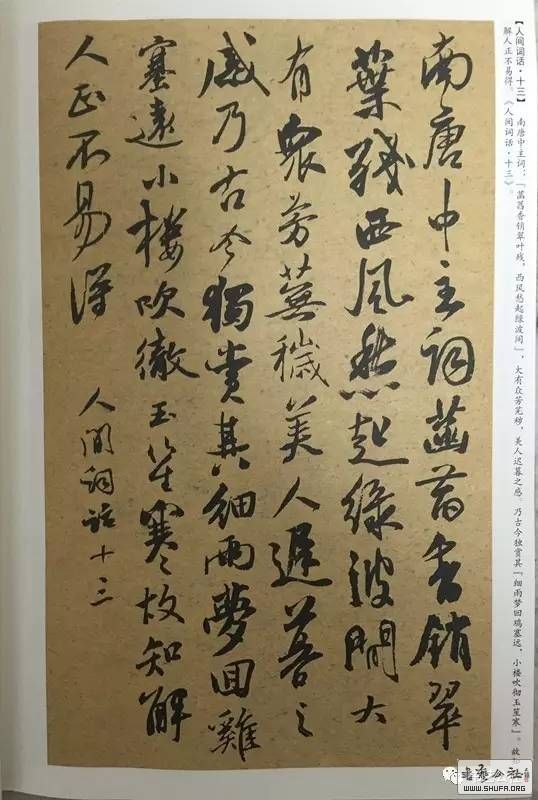 【人间词话·十三】 南唐中主词：「菡萏香销翠叶残，西风愁起绿波间」，大有众芳芜秽，美人迟暮之感。乃古今独赏其「细雨梦回鸡塞远，小楼吹彻玉笙寒」。故
解人正不易得。《人间词话·十三》。
南唐中主詞菡萏香銷翠
葉殘西風愁起緑波間大
有衆芳蕪穢美人遲暮之
感乃古今獨賞其細雨夢回雞
塞遠小樓吹徹玉笙寒故知解
人正不易得 人間詞話十三
WWW.SHUFA.ORG